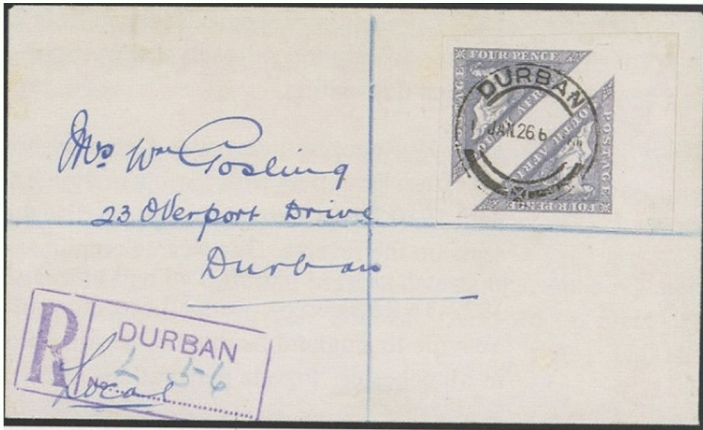 FOURPENCE
POSTAGE
DURBAN
JAN 26 6
Mrs Wm Gosling
23 Overport Drive
Durban
R
DURBAN
L 56
No
Local